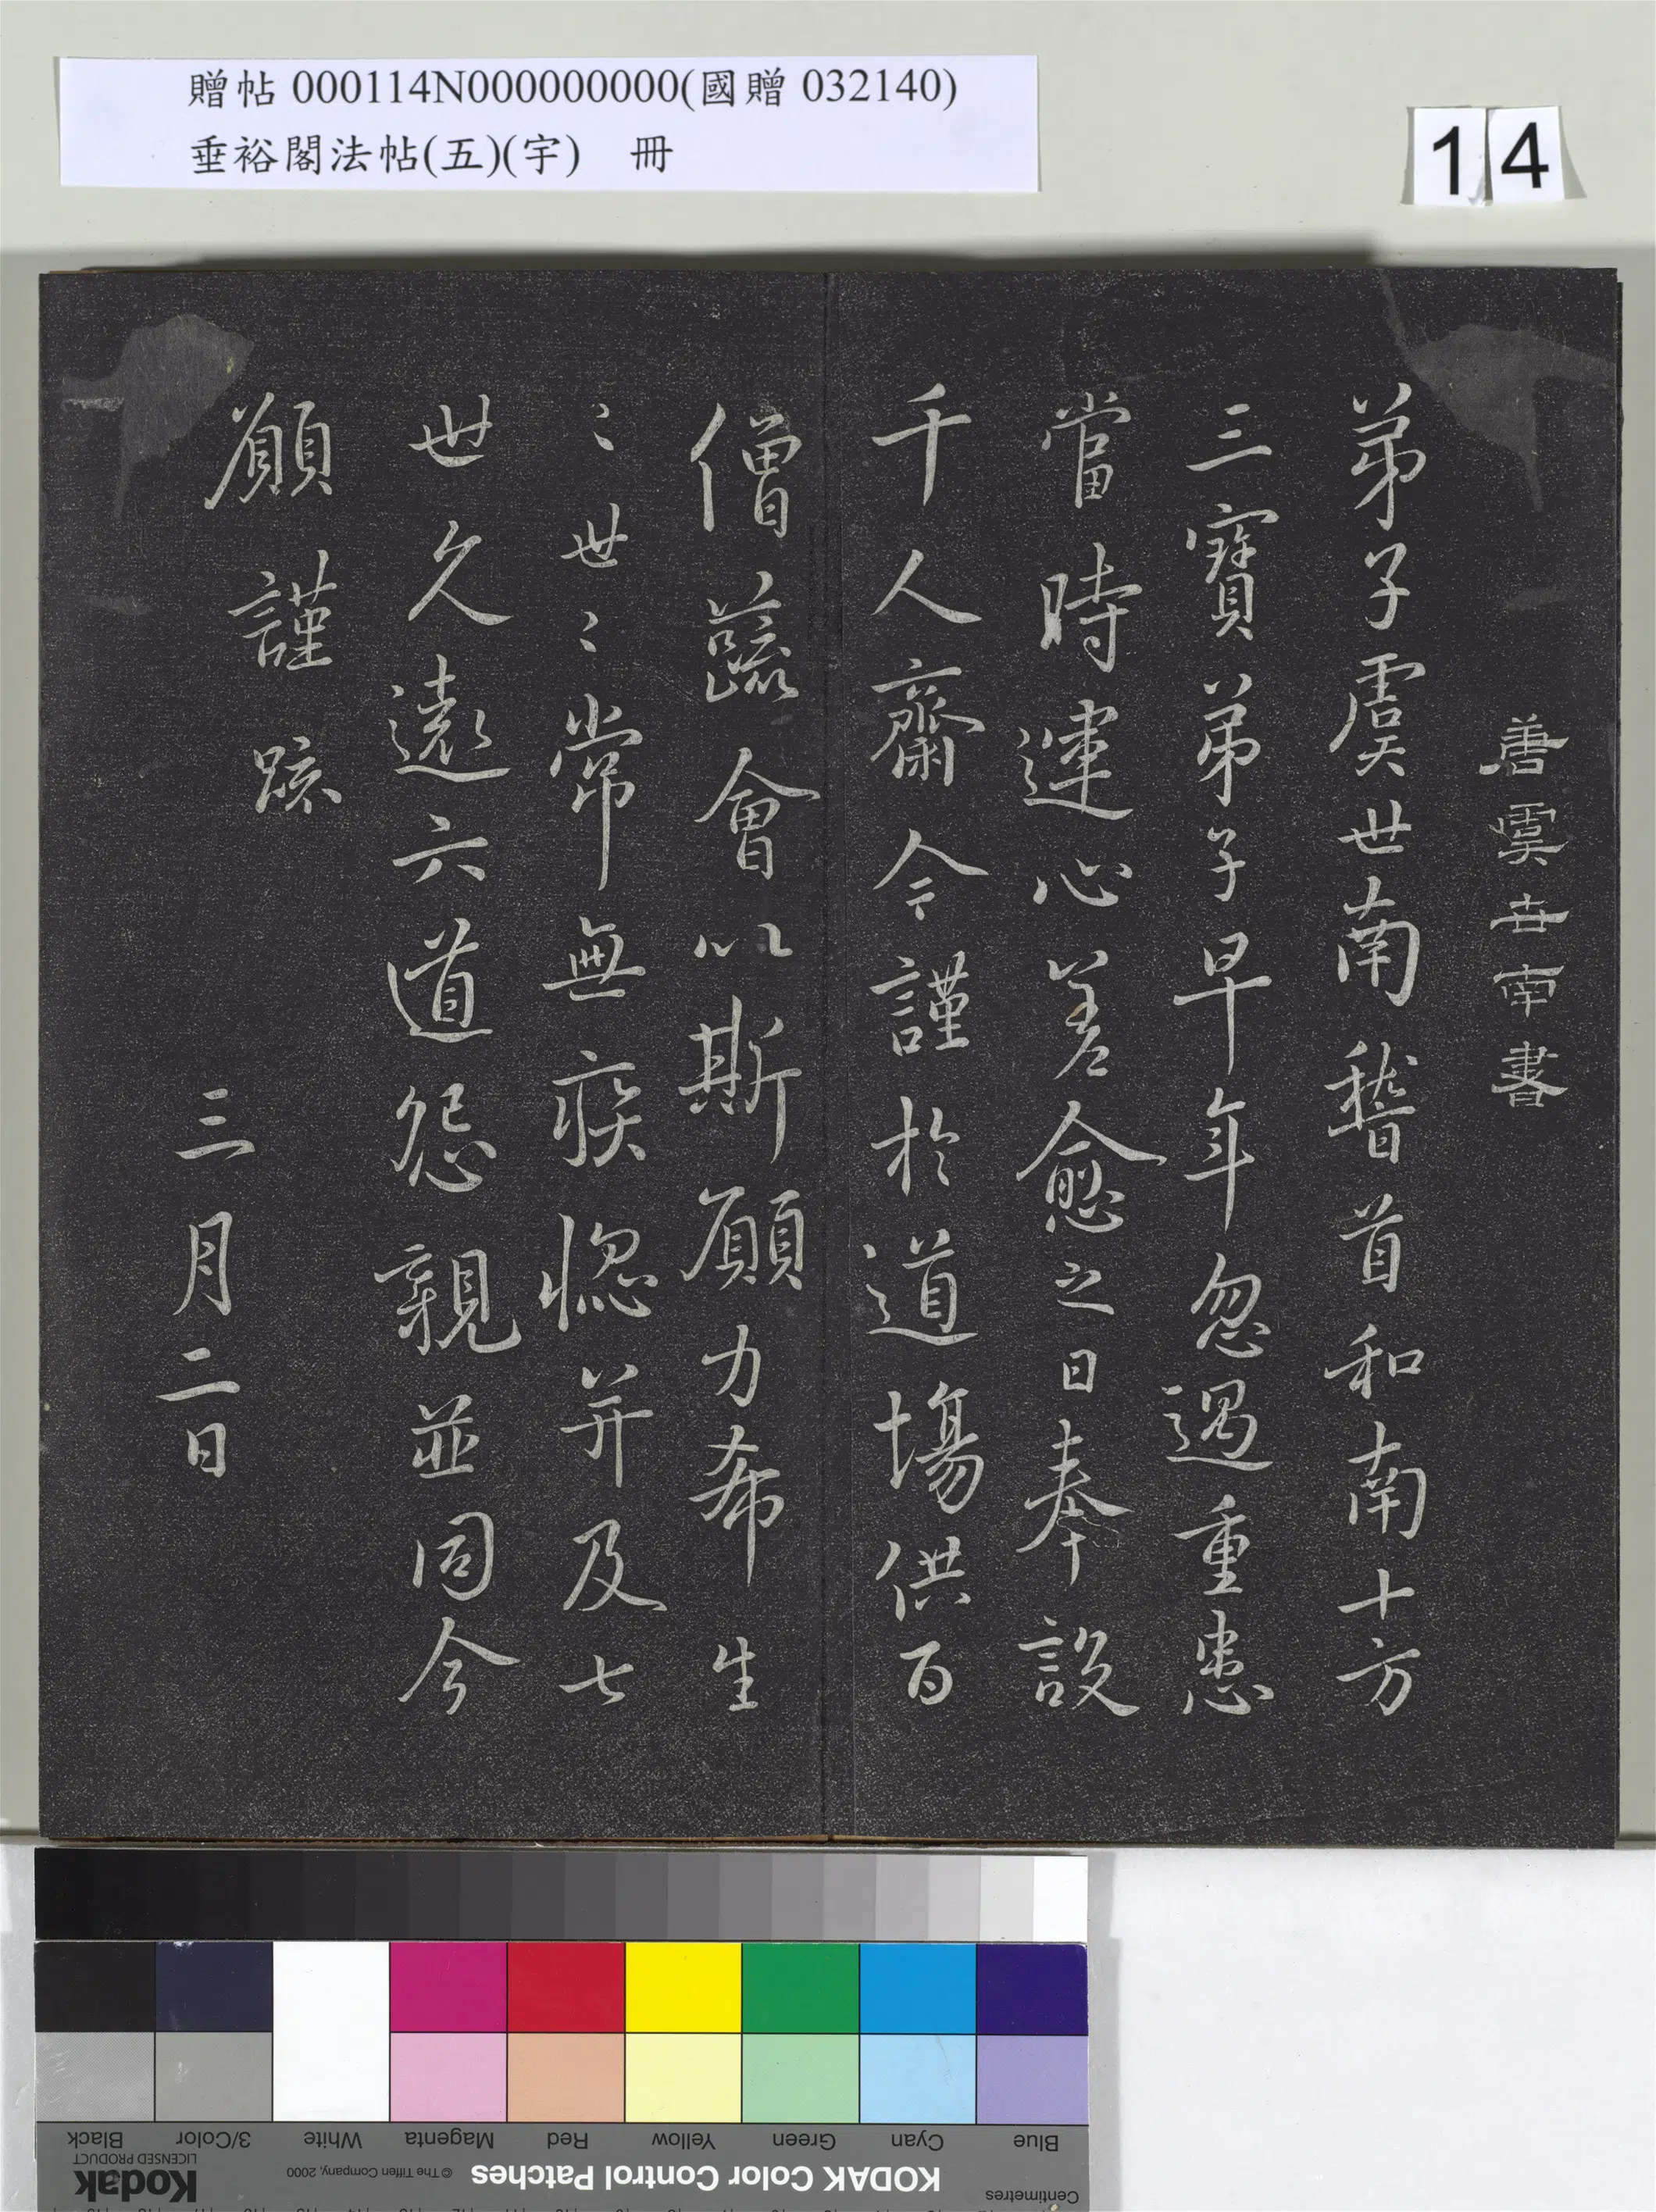 贈帖 000114N000000000(國贈 032140)
垂裕閣法帖(五)(宇) 冊
14
善虞世南書
弟子虞世南稽首和南十方
三寶弟子早年忽遇重患
當時運心差愈之日奉設
千人齋今謹於道場供百
僧蔬會以斯願力希生
〻世〻常無疾惱并及七
世久遠六道怨親並同今
願謹疏
三月二日
Black
3/Color
White
Magenta
Red
Yellow
Green
Cyan
Blue
Kodak
LICENSED PRODUCT
© The Tiffen Company, 2000
KODAK Color Control Patches
Centimetres